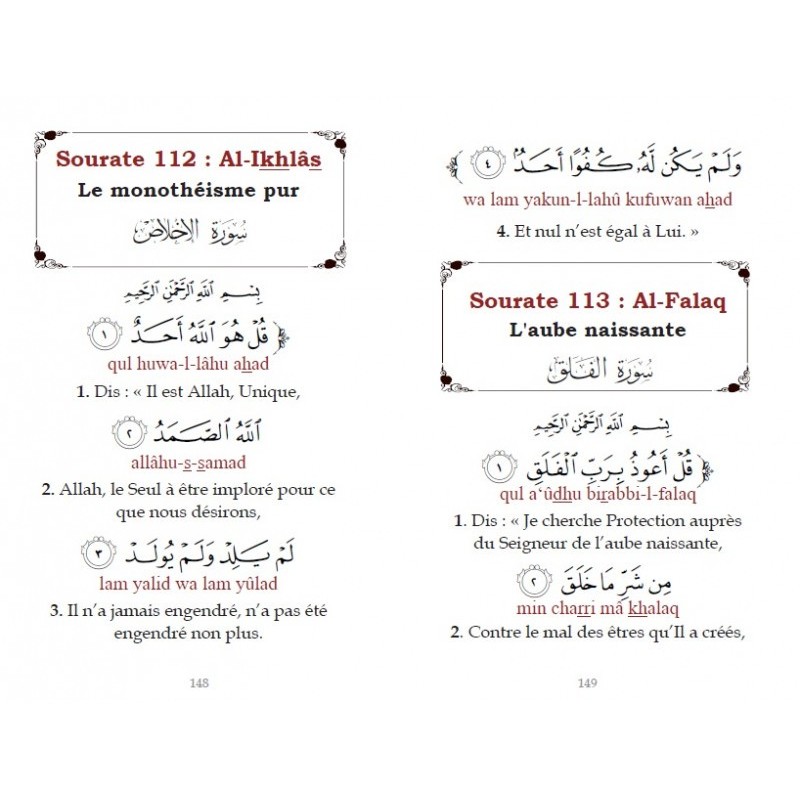 Sourate 112 : Al-Ikhlâs
Le monothéisme pur
سُورَةُ الإِخْلَاصِ
بِسْمِ ٱللَّهِ ٱلرَّحْمَٰنِ ٱلرَّحِيمِ
﴿ قُلْ هُوَ ٱللَّهُ أَحَدٌ ١
qul huwa-l-lâhu ahad
1. Dis : « Il est Allah, Unique,
ٱللَّهُ ٱلصَّمَدُ ٢
allâhu-s-samad
2. Allah, le Seul à être imploré pour ce
que nous désirons,
لَمْ يَلِدْ وَلَمْ يُولَدْ ٣
lam yalid wa lam yûlad
3. Il n’a jamais engendré, n’a pas été
engendré non plus.
148
وَلَمْ يَكُن لَّهُۥ كُفُوًا أَحَدٌۢ ٤ ﴾
wa lam yakun-l-lahû kufuwan ahad
4. Et nul n’est égal à Lui. »
Sourate 113 : Al-Falaq
L'aube naissante
سُورَةُ الفَلَقِ
بِسْمِ ٱللَّهِ ٱلرَّحْمَٰنِ ٱلرَّحِيمِ
﴿ قُلْ أَعُوذُ بِرَبِّ ٱلْفَلَقِ ١
qul a‘ûdhu birabbi-l-falaq
1. Dis : « Je cherche Protection auprès
du Seigneur de l’aube naissante,
مِن شَرِّ مَا خَلَقَ ٢
min charri mâ khalaq
2. Contre le mal des êtres qu’Il a créés,
149